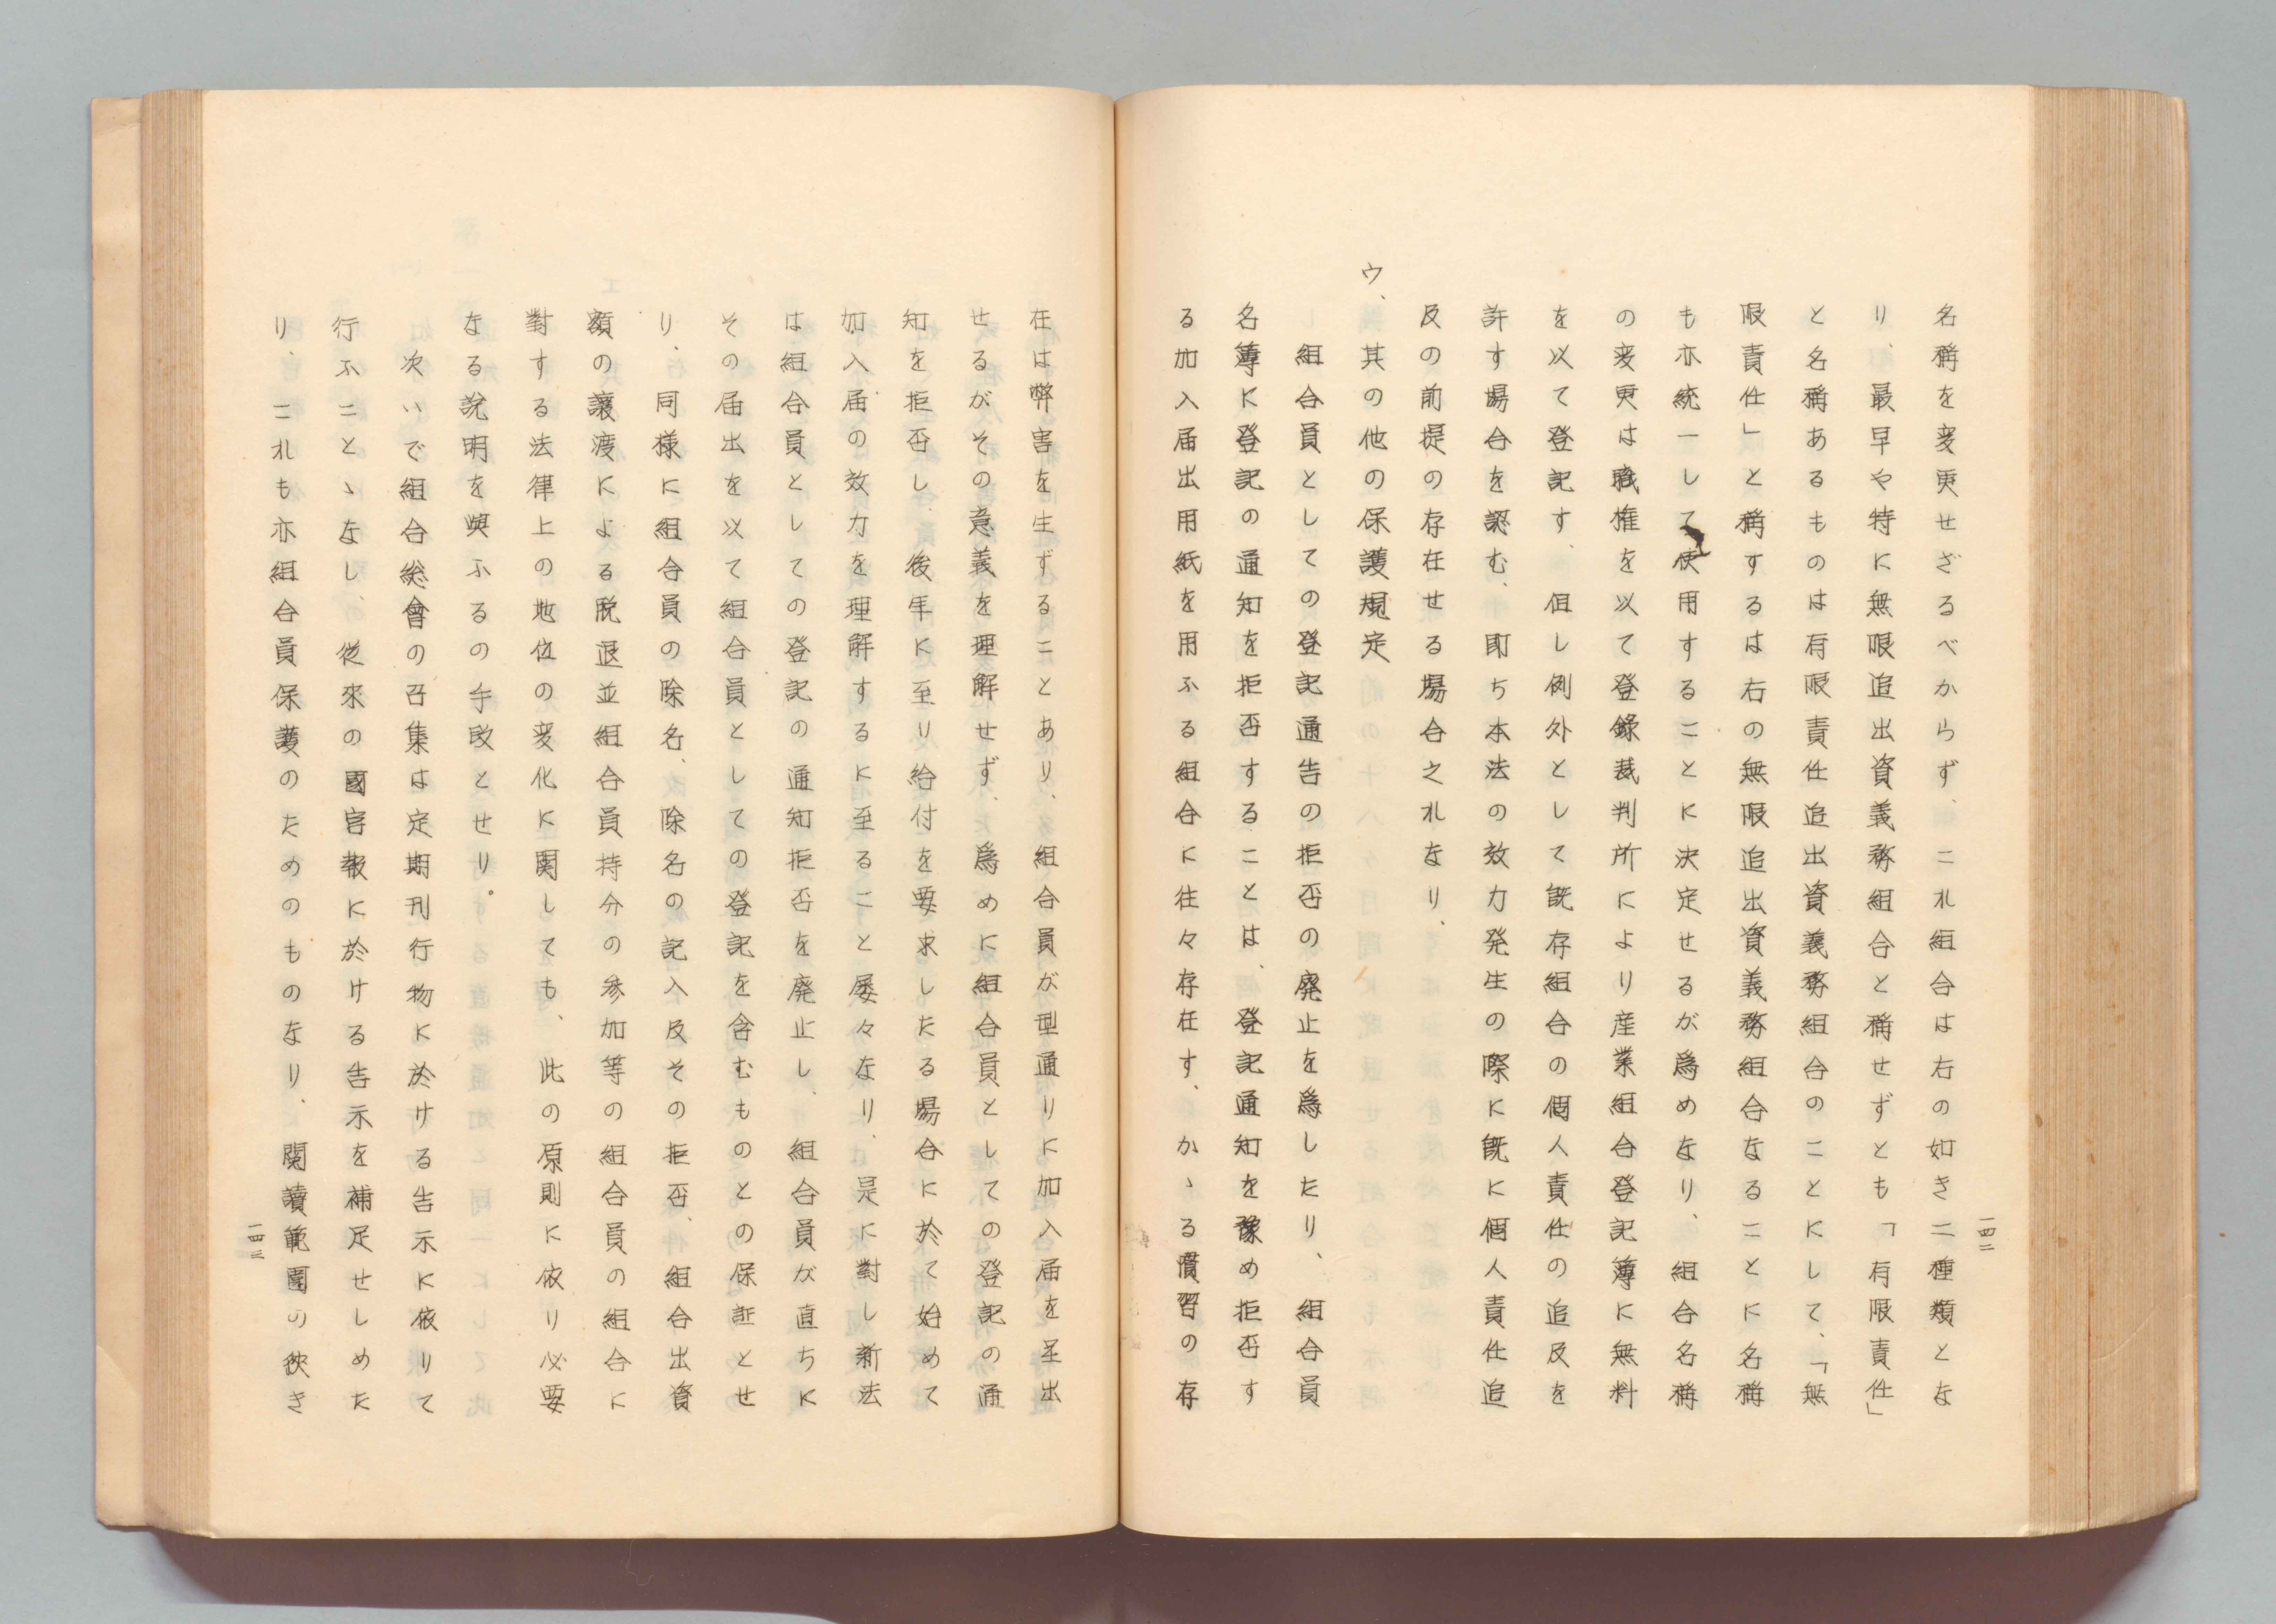 名稱を変更せざるべからず、これ組合は右の如き二種類とな
り、最早や特に無限追出資義務組合と稱せずとも「有限責任」
と名稱あるものは有限責任追出資義務組合のことにして、「無
限責任」と稱するは右の無限追出資義務組合なることに名稱
も亦統一して使用することに決定せるが為めなり、組合名稱
の変更は職権を以て登錄裁判所により産業組合登記簿に無料
を以て登記す、但し例外として既存組合の個人責任の追及を
許す場合を認む、即ち本法の效力発生の際に既に個人責任追
及の前提の存在せる場合之れなり、
ウ、其の他の保護規定
組合員としての登記通告の拒否の廃止を為したり、組合員
名簿に登記の通知を拒否することは、登記通知を豫め拒否す
る加入届出用紙を用ふる組合に往々存在す、かゝる慣習の存
一四二
在は弊害を生ずることあり、組合員が型通りに加入届を呈出
せるがその意義を理解せず、為めに組合員としての登記の通
知を拒否し、後年に至り給付を要求したる場合に於て始めて
加入届の效力を理解するに至ること屡々なり、是に對し新法
は組合員としての登記の通知拒否を廃止し、組合員が直ちに
その届出を以て組合員としての登記を含むものとの保証とせ
り、同様に組合員の除名、除名の記入及その拒否、組合出資
額の譲渡による脱退並組合員持分の参加等の組合員の組合に
對する法律上の地位の変化に関しても、此の原則に依り必要
なる說明を與ふるの手段とせり。
次いで組合総會の召集は定期刊行物に於ける告示に依りて
行ふことゝなし、従來の國官報に於ける告示を補足せしめた
り、これも亦組合員保護のためのものなり、閲讀範圍の狭き
一四三